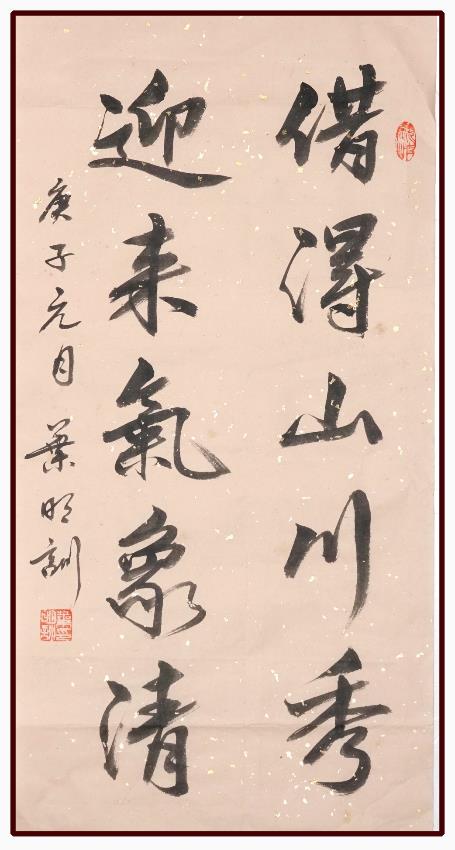 借得山川秀
迎来氣象清
庚子元月 葉明訓